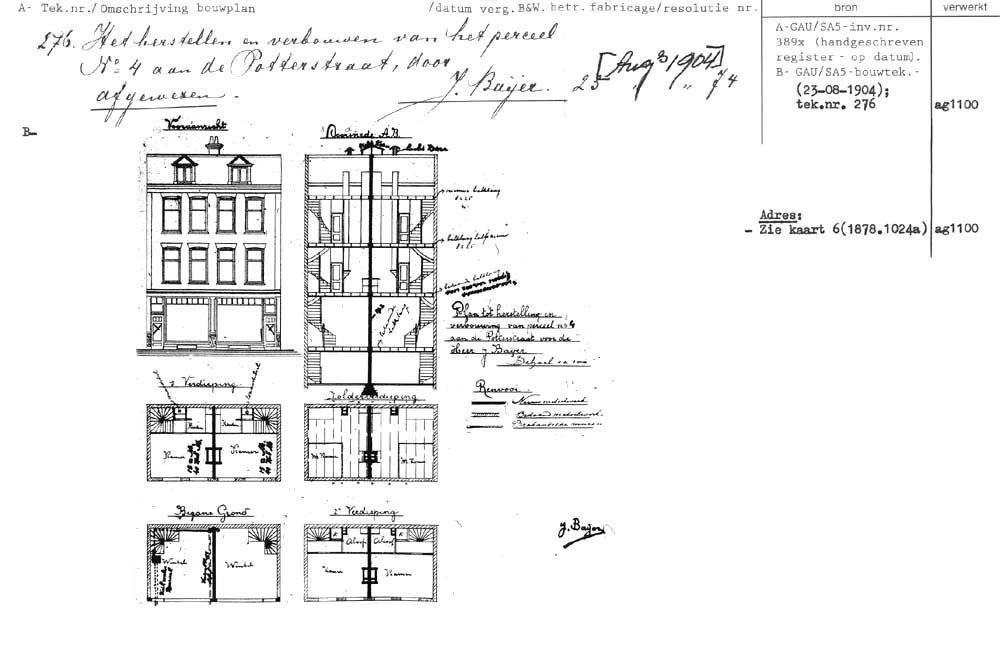 A- Tek.nr./Omschrijving bouwplan /datum verg.B&W. betr. fabricage/resolutie nr. bron verwerkt
276. Het herstellen en verbouwen van het perceel
No 4 aan de Potterstraat, door
afgewezen. J. Baijer. 23 [Aug 1904] 74
A-GAU/SA5-inv.nr.
389x (handgeschreven
register - op datum).
B- GAU/SA5-bouwtek.-
(23-08-1904);
tek.nr. 276 ag1100
B-
Adres:
- Zie kaart 6(1878.1024a) ag1100
Vooraanzicht
Doorsnede A.B.
nieuwe balklaag
Plan tot herstelling en
verbouwing van perceel no 4
aan de Potterstraat voor de
Heer J Bayer
Schaal 1 a 100
Renvooi
Nieuw metselwerk
Bestaand metselwerk
1e Verdieping
Zolderverdieping
Keuken Keuken
Kamer Kamer
Begane Grond
2e Verdieping
K Alcoof Alcoof K
Winkel Winkel
Kamer Kamer
J. Bayer